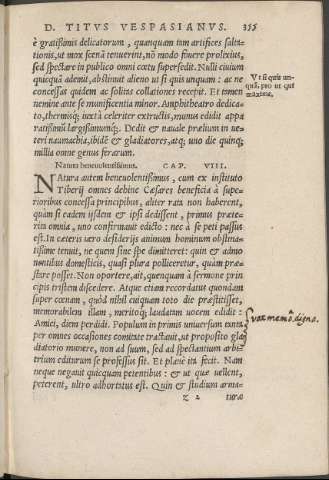 D. TITVS VESPASIANVS. 355
è gratißimis delicatorum, quanquam tam artifices salta-
tionis, ut mox scenã tenuerint, nõ modo fouere prolexius,
sed spectare in publico omni cœtu supersedit. Nulli ciuium
quicquã ademit, abstinuit alieno ut si quis unquam: ac ne
concessas quidem ac solitas collationes recepit. Et tamen
nemine ante se munificentia minor. Amphitheatro dedica-
to, thermisq; iuxtà celeriter extructis, munus edidit appa
ratißimũ largißimumq;. Dedit & nauale prælium in ue-
teri naumachia, ibidẽ & gladiatores, atq; uno die quinq;
millia omne genus ferarum.
Vt si quis un-
quã, pro ut qui
maximè.
Natura beneuolentißimus. CAP. VIII.
NAtura autem beneuolentißimus, cum ex instituto
Tiberij omnes dehinc Cæsares beneficia à supe-
rioribus concessa principibus, aliter rata non haberent,
quàm si eadem ijsdem & ipsi dedissent, primus præte-
rita omnia, uno confirmauit edicto: nec à se peti passus
est. In cæteris uero desiderijs hominum obstina-
tißime tenuit, ne quem sine spe dimitteret: quin & admo
nentibus domesticis, quasi plura polliceretur, quàm præ-
stare posset. Non oportere, ait, quenquam à sermone prin
cipis tristem discedere. Atque etiam recordatus quondam
super cœnam, quòd nihil cuiquam toto die præstitisset,
memorabilem illam, meritoq; laudatam uocem edidit:
Amici, diem perdidi. Populum in primis uniuersum tanta
per omnes occasiones comitate tractauit, ut proposito gla
diatorio munere, non ad suum, sed ad spectantium arbi-
trium editurum se professus sit. Et planè ita fecit. Nam
neque negauit quicquam petentibus: & ut quæ uellent,
peterent, ultro adhortatus est. Quin & studium arma-
vox memo. digna.
z 2 turæ